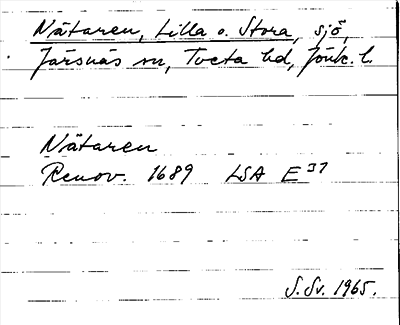 Nätaren, Lilla o. Stora, sjö,
Järsnäs sn, Tveta hd, Jönk. l.
Nätaren
Renov. 1689 LSA E³⁷
S. Sv. 1965.